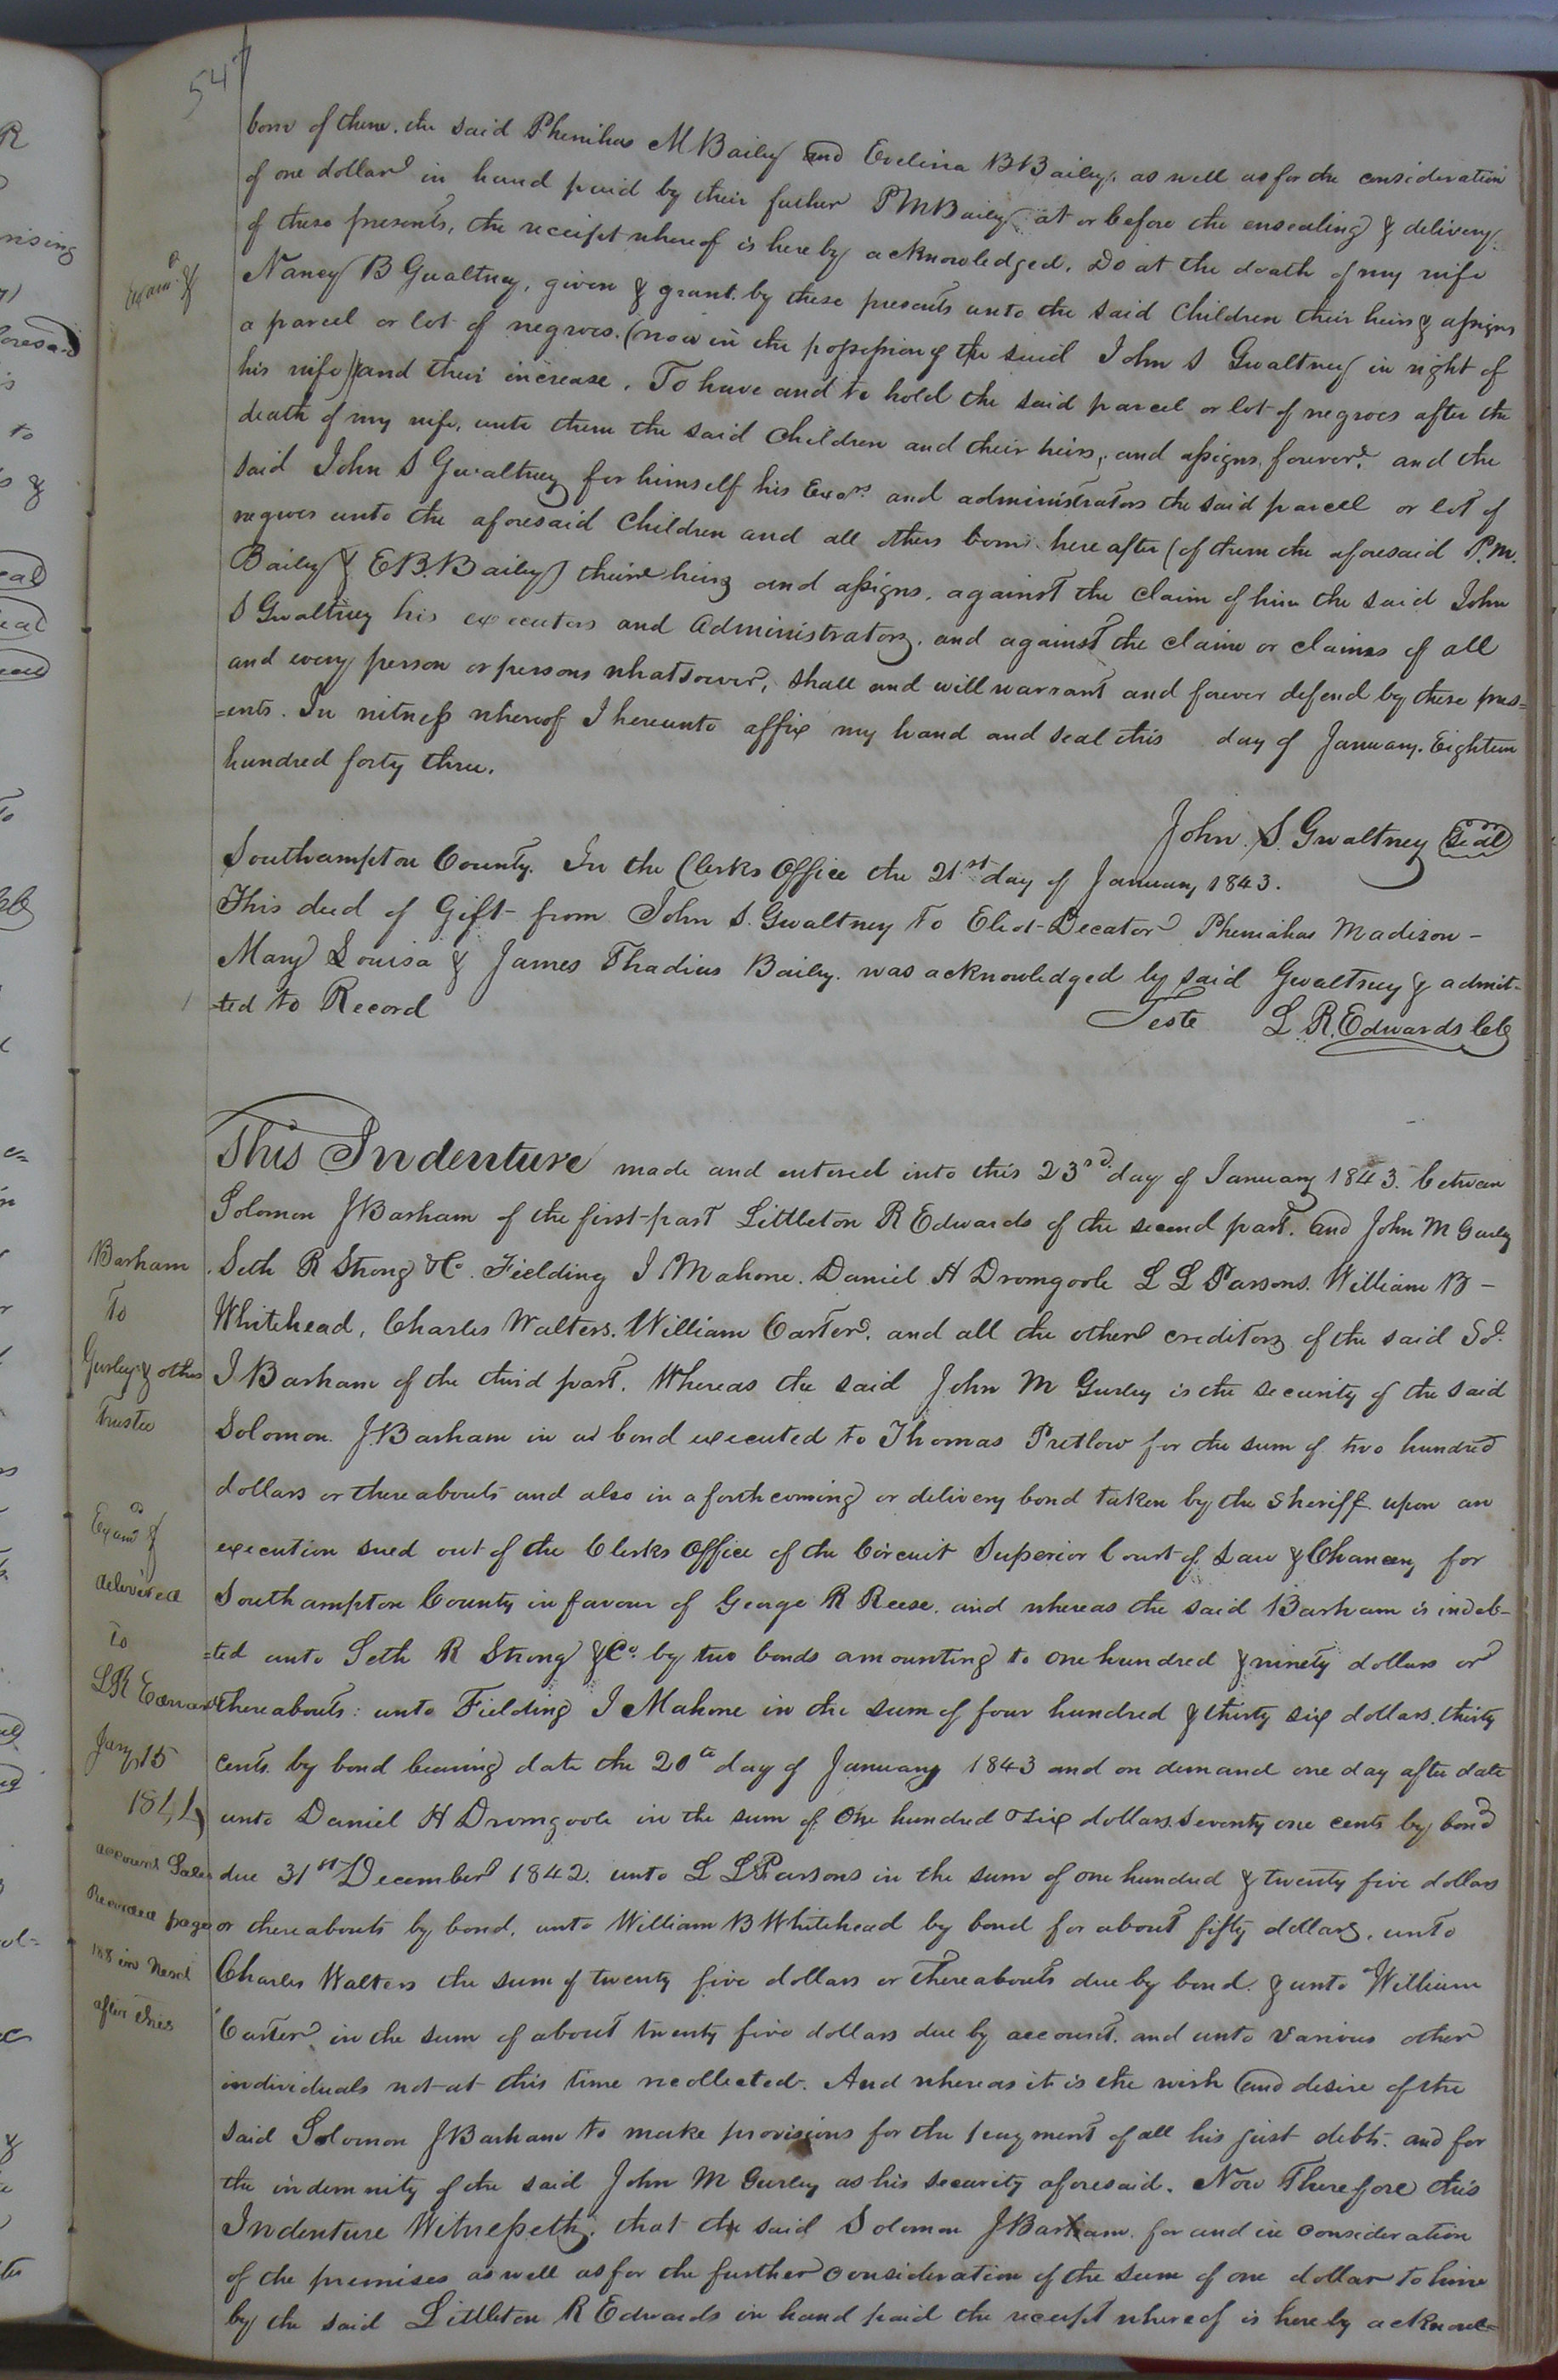 54
born of them. the said Phenihas M Baily and Evelina B Baily. as well as for the consideration
of one dollar in hand paid by their father P M Baily at or before the ensealing & delivery
of these presents, the receipt whereof is hereby acknowledged. Do at the death of my wife
Nancy B Gwaltney, given & grant by these presents unto the said Children their heirs & assigns
a parcel or lot of negroes. (now in the possession of the said John S Gwaltney in right of
his wife) and their increase. To have and to hold the said parcel or lot of negroes after the
death of my wife, unto them the said Children and their heirs, and assigns forever. and the
said John S Gwaltney for himself his Exors and administrators the said parcell or lot of
negroes unto the aforesaid Children and all others born hereafter (of them the aforesaid P. M.
Baily & E B. Baily) their heirs and assigns. against the claim of him the said John
S Gwaltney his executors and Administrators. and against the claim or claims of all
and every person or persons whatsoever, shall and will warrant and forever defend by these pres=
=ents. In witness whereof I hereunto affix my hand and seal this day of January. Eighteen
hundred forty three.
John S. Gwaltney Seal
Southampton County. In the Clerks Office the 21st day of January 1843.
This deed of Gift from John S. Gwaltney to Decator Pheniahas Madison -
Mary Louisa & James Thadius Baily. was acknowledged by said Gwaltney & admit-
=ted to Record
Teste L. R. Edwards CC
Examd &
This Indenture made and entered into this 23rd day of January 1843. between
Solomon J Barham of the first part Littleton R Edwards of the second part. and John M Gurley
Seth R Strong & Co. Fielding J Mahone. Daniel H Dromgoole L L Parsons. William B -
Whitehead, Charles Walters. William Carter. and all the other creditors of the said Sol.
J Barham of the third part. Whereas the said John M Gurley is the security of the said
Solomon J. Barham in a bond executed to Thomas Pretlow for the sum of two hundred
dollars or thereabouts and also in a forthcoming or delivery bond taken by the Sheriff upon an
execution sued out of the Clerks Office of the Circuit Superior Court of Law & Chancery for
Southampton County in favour of George R Reese. and whereas the said Barham is indeb-
=ted unto Seth R Strong & Co. by two bonds amounting to one hundred & ninety dollars or
thereabouts: unto Fielding J Mahone in the sum of four hundred & thirty six dollars. thirty
cents. by bond bearing date the 20th day of January 1843 and on demand one day after date
unto Daniel H Dromgoole in the sum of One hundred & six dollars. Seventy one cents by bond
due 31st December 1842. unto L L Parsons in the sum of one hundred & twenty five dollars
or thereabouts by bond. unto William B Whitehead by bond for about fifty dollars. unto
Charles Walters the sum of twenty five dollars or thereabouts due by bond. & unto William
Carter in the sum of about twenty five dollars due by account. and unto various other
individuals not at this time recollected. And whereas it is the wish and desire of the
said Solomon J Barham to make provisions for the payment of all his just debts. and for
the indemnity of the said John M Gurley as his security aforesaid. Now Therefore this
Indenture Witnesseth. that the said Solomon J Barham. for and in consideration
of the premises as well as for the further consideration of the sum of one dollar to him
by the said Littleton R Edwards in hand paid the receipt whereof is hereby acknowl=
Barham
To
Gurley & others
Trustee
Examd &
delivered
to
L R Edwards
Jany 15
1844
account Sales
Recorded page
188 in Next
after this